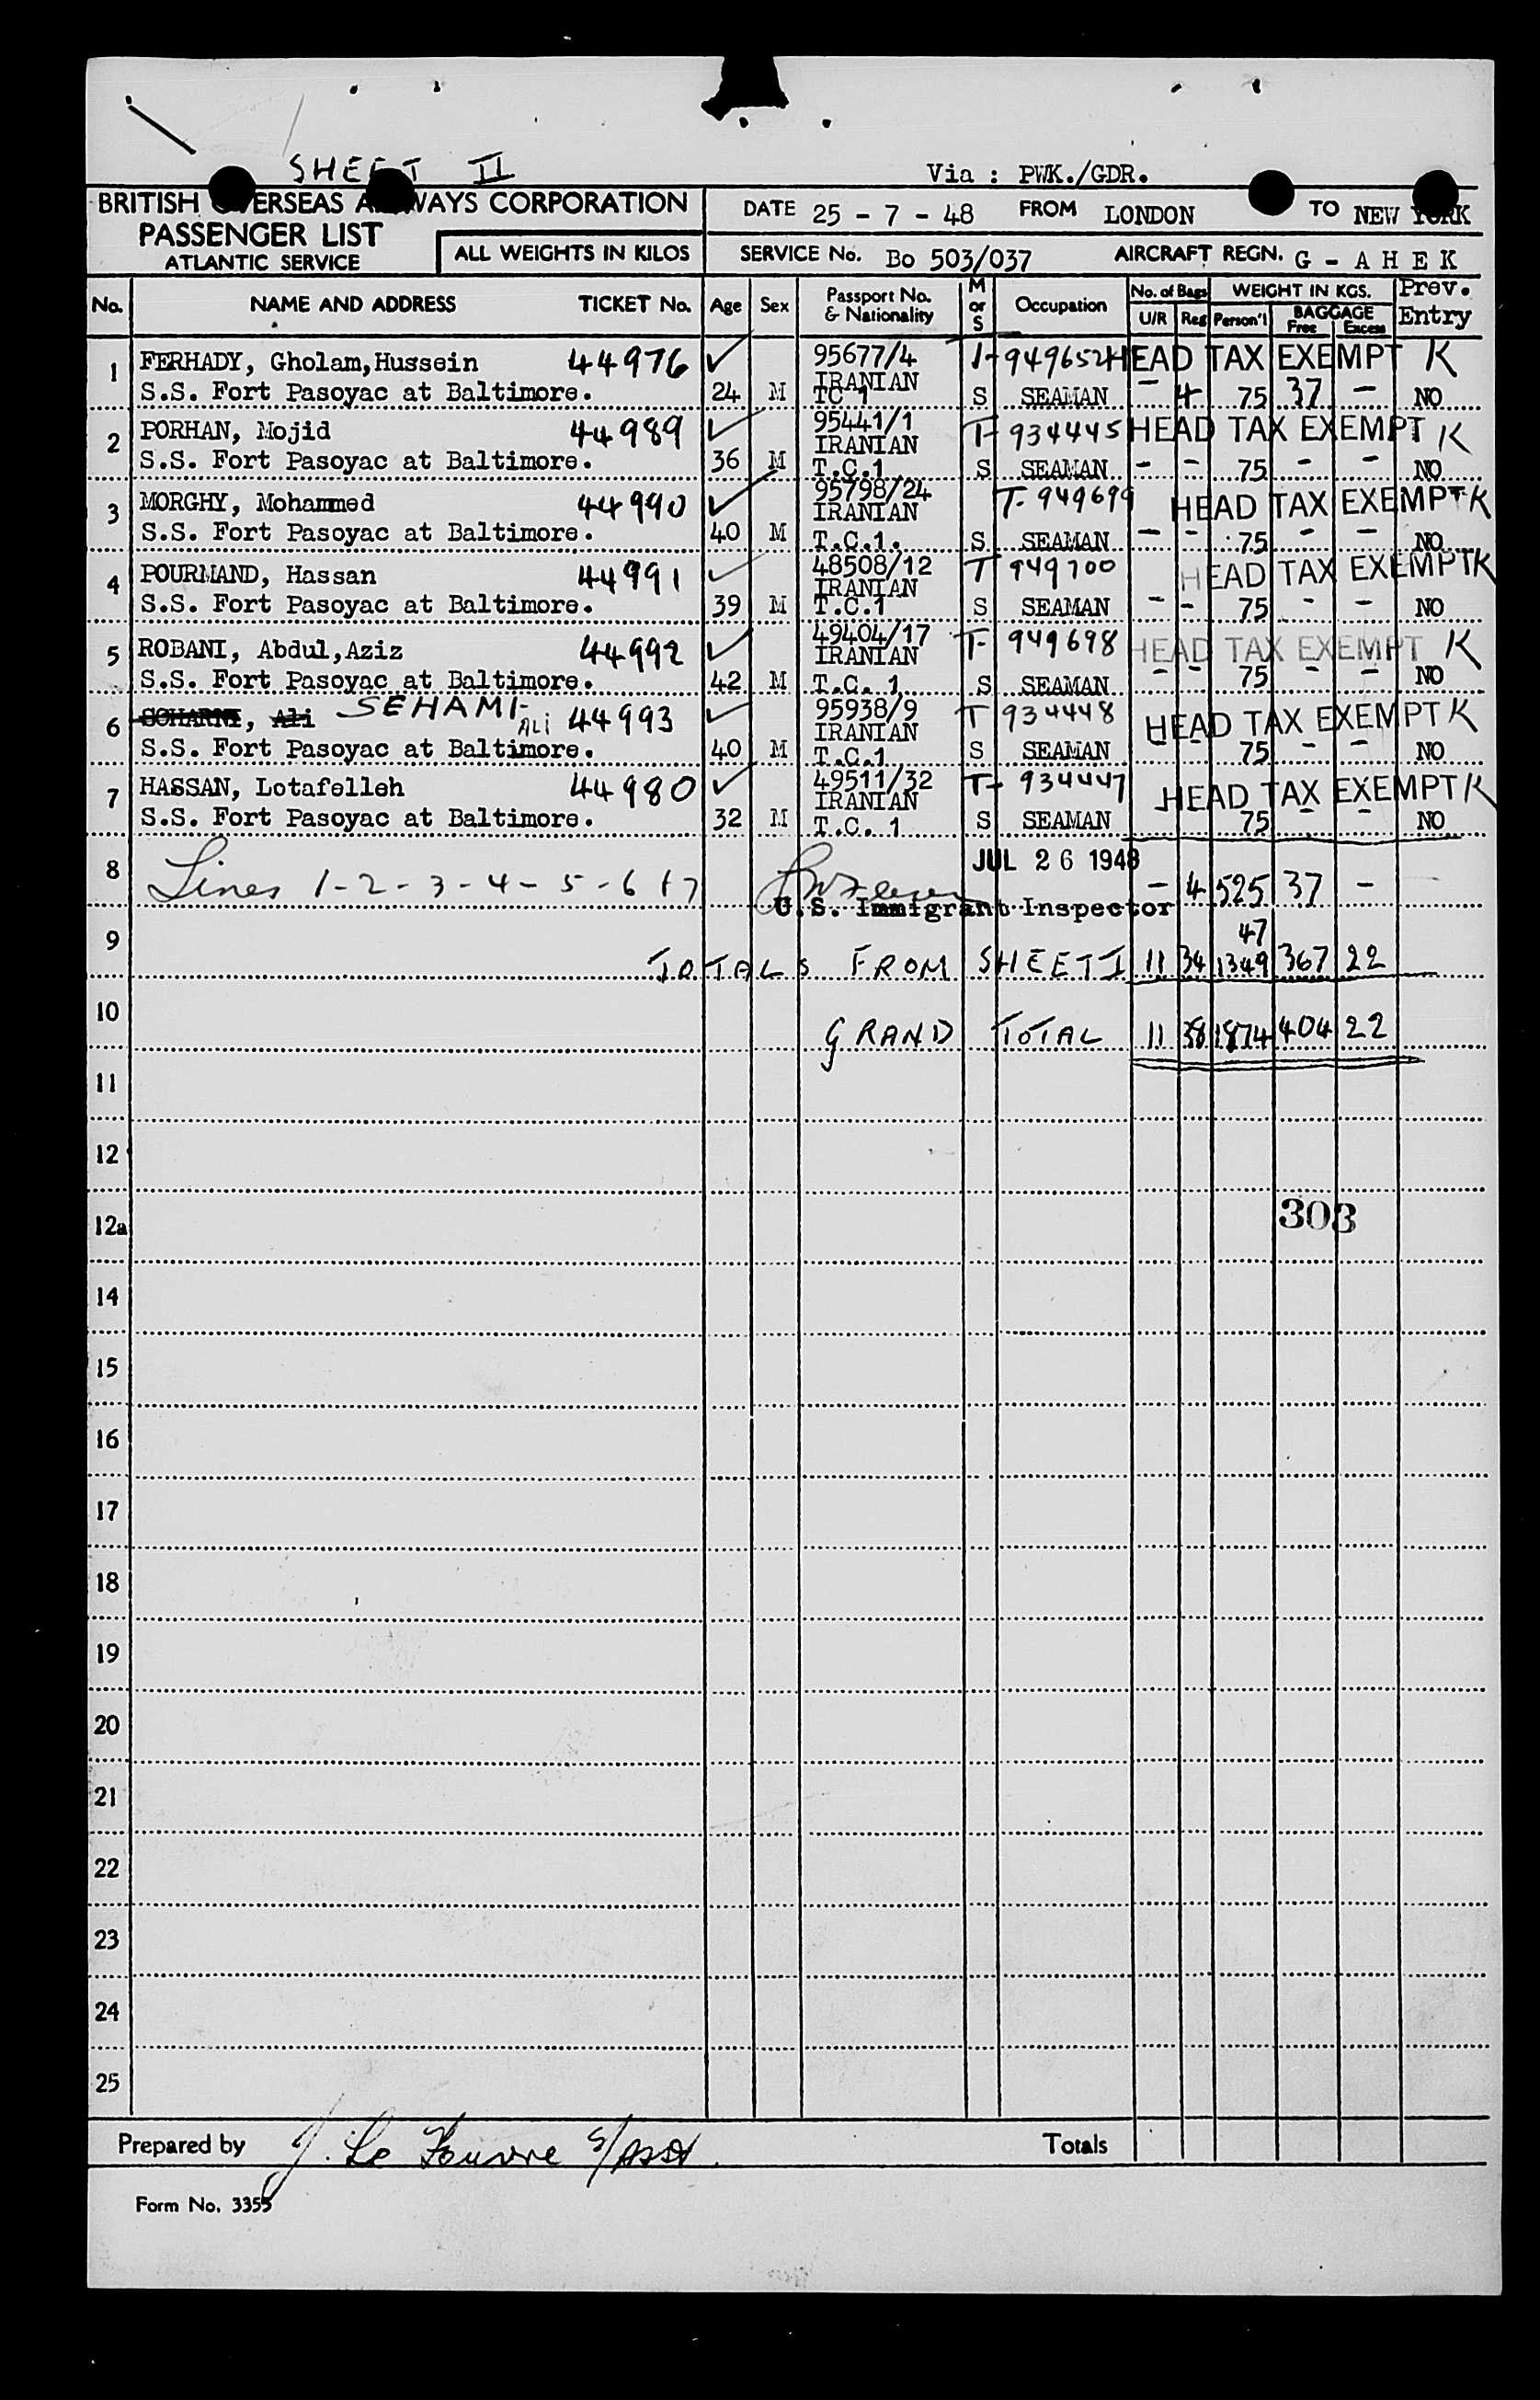 SHEET II
Via : PWK./GDR.
BRITISH OVERSEAS AIRWAYS CORPORATION
PASSENGER LIST
ATLANTIC SERVICE
ALL WEIGHTS IN KILOS
DATE 25 - 7 - 48 FROM LONDON TO NEW YORK
SERVICE No. Bo 503/037 AIRCRAFT REGN. G - A H E K
No. NAME AND ADDRESS TICKET No. Age Sex Passport No. & Nationality M or S Occupation No. of Bags U/R Reg WEIGHT IN KGS. Person'l BAGGAGE Free Excess Prev. Entry
1 FERHADY, Gholam,Hussein 44976 ✓ 95677/4 T-949652 HEAD TAX EXEMPT K
IRANIAN
S.S. Fort Pasoyac at Baltimore. 24 M TC 1 S SEAMAN - 4 75 37 - NO
2 PORHAN, Mojid 44989 ✓ 95441/1 T-934445 HEAD TAX EXEMPT K
IRANIAN
S.S. Fort Pasoyac at Baltimore. 36 M T.C.1 S SEAMAN - - 75 - - NO
3 MORGHY, Mohammed 44990 ✓ 95798/24 T-949699 HEAD TAX EXEMPT K
IRANIAN
S.S. Fort Pasoyac at Baltimore. 40 M T.C.1. S SEAMAN - - 75 - - NO
4 POURMAND, Hassan 44991 ✓ 48508/12 T 949700 HEAD TAX EXEMPT K
IRANIAN
S.S. Fort Pasoyac at Baltimore. 39 M T.C.1 S SEAMAN - - 75 - - NO
5 ROBANI, Abdul,Aziz 44992 ✓ 49404/17 T- 949698 HEAD TAX EXEMPT K
IRANIAN
S.S. Fort Pasoyac at Baltimore. 42 M T.C. 1 S SEAMAN - - 75 - - NO
6 Ali SEHAMI- ALi 44993 ✓ 95938/9 T 934448 HEAD TAX EXEMPT K
IRANIAN
S.S. Fort Pasoyac at Baltimore. 40 M T.C.1 S SEAMAN - - 75 - - NO
7 HASSAN, Lotafelleh 44980 ✓ 49511/32 T- 934447 HEAD TAX EXEMPT K
IRANIAN
S.S. Fort Pasoyac at Baltimore. 32 M T.C. 1 S SEAMAN 75 - - NO
JUL 26 1948
8 Lines 1-2-3-4-5-6+7 - 4 525 37 -
U.S. Immigrant Inspector
47
9 TOTALS FROM SHEET I 11 34 1349 367 22
10 GRAND TOTAL 11 38 1874 404 22
11
12
12a 303
14
15
16
17
18
19
20
21
22
23
24
25
Prepared by J. Le Totals
Form No. 3355